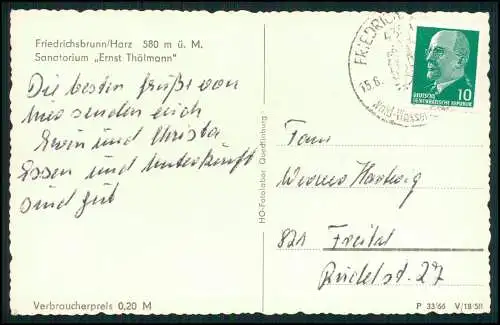 Friedrichsbrunn/Harz 580 m ü. M.
Sanatorium „Ernst Thälmann"
Die besten Grüße von
hier senden euch
Erwin und Christa
Essen und Unterkunft
sind gut
Verbraucherpreis 0,20 M
HO-Fotolabor Quedlinburg
FRIEDRICH
15.6.
10
DEUTSCHE
DEMOKRATISCHE REPUBLIK
Fam
Werner
821 Freital
27
P 33/66 V/18/511